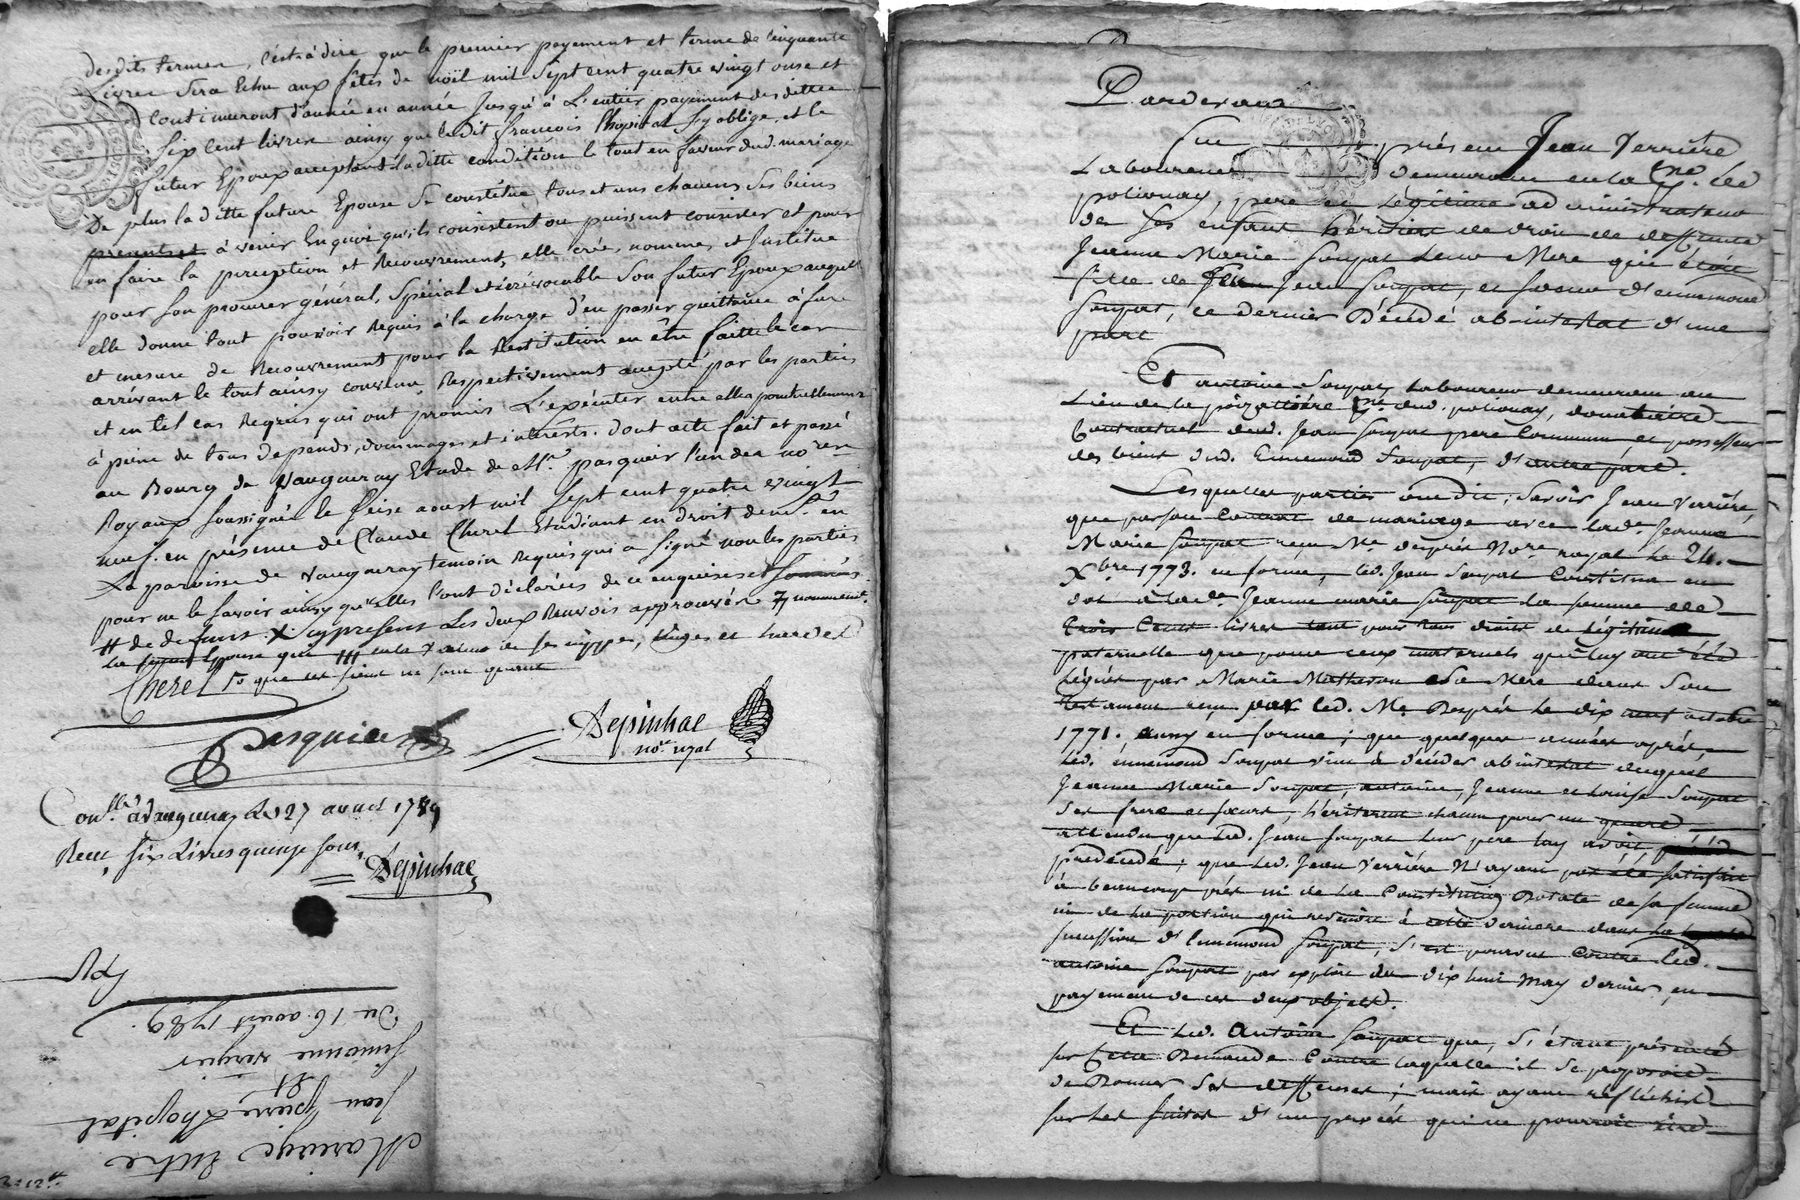 desdits termes, c'est à dire que le premier payement et terme de cinquante
Livres sera Echu aux fêtes de noël mil sept cent quatre vingt onse et
continueront d'année en année jusqu'à L'entier payement desdittes
six cent livres ainsy que ledit françois Lhopital s'y oblige, et le
futur Epoux acceptant laditte condition le tout en faveur dud. mariage
De plus laditte future Epouse se constitue tous et uns chacuns ses biens
presents et à venir En quoi qu'ils consistent ou puissent consister et pour
en faire la perception et Recouvrement, elle crée, nomme, et Institue
pour son procureur général, spécial et irrévocable son futur Epoux auquel
elle donne tout pouvoir Requis à la charge d'en passer quittance à fure
et mesure de Recouvrement pour la Restitution en être faitte le cas
arrivant le tout ainsy convenu, Respectivement accepté par les parties
et en tel cas Requis qui ont promis L'exécuter entre elles ponctuellement
à peine de tous depends, dommages et intérêts. Dont acte fait et passé
au Bourg de Vaugneray Etude de Me. pasquier l'un des nores
Royaux soussignés le seise aoust mil sept cent quatre vingt
neuf. en présence de Claude Cherel Etudiant en droit demt. en
La paroisse de Vaugneray temoin Requis qui a signé non les parties
pour ne le savoir ainsy qu'elles l'ont déclarées de ce enquises et sommées
# de defunt. X cy présent Les deux Renvois approuvés
que /// en la valeur de ses nippes, linges et hardes
Cherel
Pasquier
Depinhac
nore. royal
Conllé à Vaugneray Le 27 aoust 1789
Recu six Livres quinze sous
Depinhac
Mariage Entre
Jean pierre Lhopital
Et
simonne vergier
Du 16. aoust 1789.
Pardevant
Fut présent Jean Verrière
Laboureur demeurant en la pse. de
polionay, pere et Légitime administrateur
de ses enfans héritiers de droit de deffunte
Jeanne Marie Soupat Leur Mere qui étoit
fille de Jean Soupat, et soeur d'ennemond
Soupat, ce dernier Décédé ab intestat d'une
part
Et antoine Soupat Laboureur demeurant au
Lieu de la pse. dud. polionay, donataire
Contractuel dud. Jean Soupat pere Commun, et possesseur
des biens dud. Ennemond Soupat, d'autre part.
Lesquelles parties ont dit; savoir Jean Verrière,
que par son Contrat de mariage avec lade. Jeanne
Marie Soupat reçu Me. despres Nore. royal Le 24.
Xbre. 1773. en forme, led. Jean Soupat Constitua en
dot à lade. Jeanne marie Soupat la somme de
trois Cent livres tant pour tous droits de Légitime
paternelle que pour ceux maternels qui luy ont été
Légués par Marie Matheron sa Mere dans son
testament reçu par led. Me. Després Le dix octobre
1771. aussy en forme; que quelques années après
Led. ennemond Soupat vint à décéder ab intestat duquel
Jeanne Marie Soupat, antoine, Jeanne et Louise Soupat
ses frere et soeurs, héritèrent chacun pour un quart
attendu que Led. Jean Soupat Leur pere luy avoit
prédécédé; que Led. Jean Verrière n'ayant pas été satisfait
à beaucoup près ni de La Constitution Dotale de sa femme
ni de La portion qui revenoit à cette derniere dans la
succession d'Ennemond Soupat, s'est pourvu Contre Led.
antoine Soupat par exploit du dix huit May dernier, en
payement de ces deux objets.
Et Led. Antoine Soupat que, s'étant présenté
sur Cette Demande Contre laquelle il se proposoit
de Donner ses deffenses; mais ayant réfléchit
sur Les suites d'un procès qui ne pourroit être